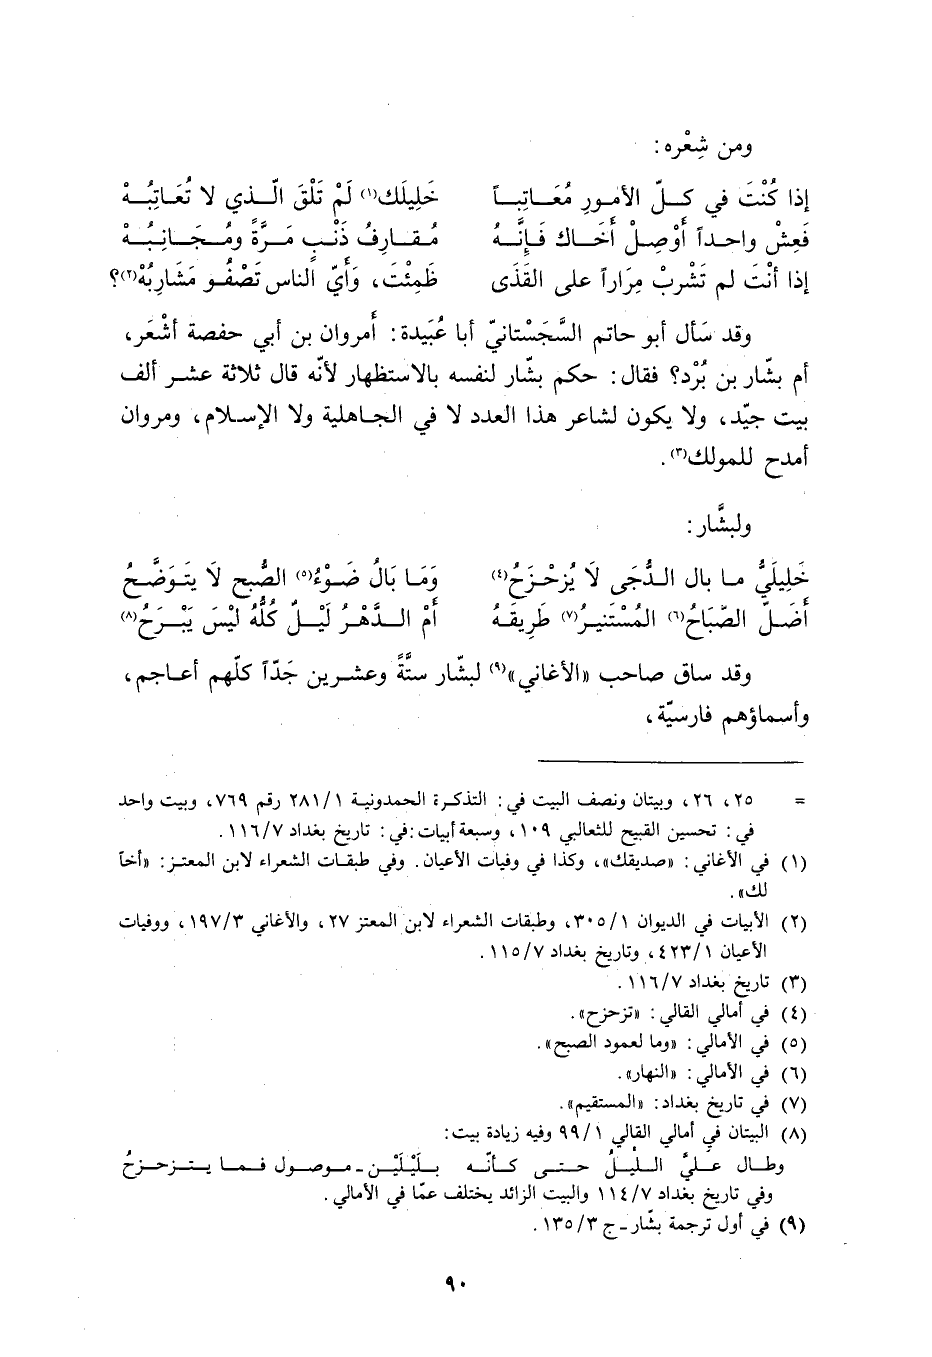 ومن شِعْره:
إذا كُنْتَ في كـلّ الأمـورِ مُعَـاتِبـاً خَلِيلَك⁽¹⁾ لَمْ تَلْقَ الّـذي لا تُعَـاتِبُـهْ
فَعِشْ واحـداً أَوْصِلْ أَخَـاك فَـإِنَّـهُ مُقـارِفُ ذَنْـبٍ مَـرَّةً ومُجَـانِبُـهْ
إذا أنْتَ لم تَشْربْ مِرَاراً على القَذَى ظَمِئْتَ، وَأَيّ الناس تَصْفُـو مَشَاربُهْ⁽٢⁾؟
وقد سَأل أبو حاتم السَّجَسْتانيّ أبا عُبَيدة: أَمروان بن أبي حفصة أشْعَر،
أم بشّار بن بُرْد؟ فقال: حكم بشّار لنفسه بالاستظهار لأنّه قال ثلاثة عشر ألف
بيت جيّد، ولا يكون لشاعر هذا العدد لا في الجاهلية ولا الإسلام، ومروان
أمدح للمولك⁽٣⁾.
ولبشَّار:
خَلِيلَيَّ مـا بال الـدُّجَى لَا يُزحْـزَحُ⁽٤⁾ وَمَـا بَالُ ضَـوْءُ⁽٥⁾ الصُّبح لَا يتَـوَضَّـحُ
أَضَـلّ الصَّبَاحُ⁽٦⁾ المُسْتَنيـرُ⁽٧⁾ طَرِيقَـهُ أَمْ الـدَّهْـرُ لَيْـلٌ كُلُّهُ لَيْسَ يَبْـرَحُ⁽٨⁾
وقد ساق صاحب «الأغاني»⁽٩⁾ لبشّار ستَّةً وعشرين جَدّاً كلّهم أعاجم،
وأسماؤهم فارسيّة،
= ٢٥، ٢٦، وبيتان ونصف البيت في: التذكرة الحمدونية ٢٨١/١ رقم ٧٦٩، وبيت واحد
في: تحسين القبيح للثعالبي ١٠٩، وسبعة أبيات:في: تاريخ بغداد ١١٦/٧.
(١) في الأغاني: «صديقك»، وكذا في وفيات الأعيان. وفي طبقات الشعراء لابن المعتز: «أخاً
لك».
(٢) الأبيات في الديوان ٣٠٥/١، وطبقات الشعراء لابن المعتز ٢٧، والأغاني ١٩٧/٣، ووفيات
الأعيان ٤٢٣/١، وتاريخ بغداد ١١٥/٧.
(٣) تاريخ بغداد ١١٦/٧.
(٤) في أمالي القالي: «تزحزح».
(٥) في الأمالي: «وما لعمود الصبح».
(٦) في الأمالي: «النهار».
(٧) في تاريخ بغداد: «المستقيم».
(٨) البيتان في أمالي القالي ٩٩/١ وفيه زيادة بيت:
وطـال عَـلَيَّ الـلَّيـلُ حـتـى كـأنّـه بـلَيْلَيْـن ـ مـوصـول فـمـا يـتـزحـزحُ
وفي تاريخ بغداد ١١٤/٧ والبيت الزائد يختلف عمّا في الأمالي.
(٩) في أول ترجمة بشّار ـ ج ١٣٥/٣.
٩٠